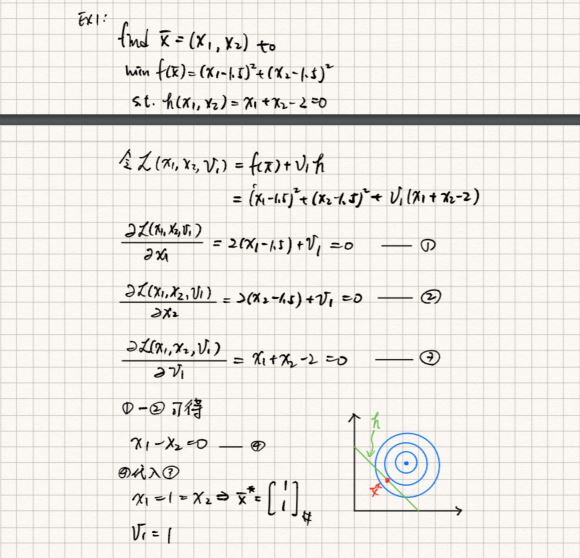 EX1:
find x̄ = (x₁, x₂) to
min f(x̄) = (x₁-1.5)² + (x₂-1.5)²
s.t. h(x₁, x₂) = x₁ + x₂ - 2 = 0
令 L(x₁, x₂, V₁) = f(x̄) + V₁h
= (x₁-1.5)² + (x₂-1.5)² + V₁(x₁+x₂-2)
∂L(x₁,x₂,V₁)/∂x₁ = 2(x₁-1.5) + V₁ = 0 —— ①
∂L(x₁,x₂,V₁)/∂x₂ = 2(x₂-1.5) + V₁ = 0 —— ②
∂L(x₁,x₂,V₁)/∂V₁ = x₁ + x₂ - 2 = 0 —— ③
①-② 可得
x₁ - x₂ = 0 —— ④
④代入③
x₁ = 1 = x₂ ⇒ x̄* = [1 1] #
V₁ = 1
h
x*